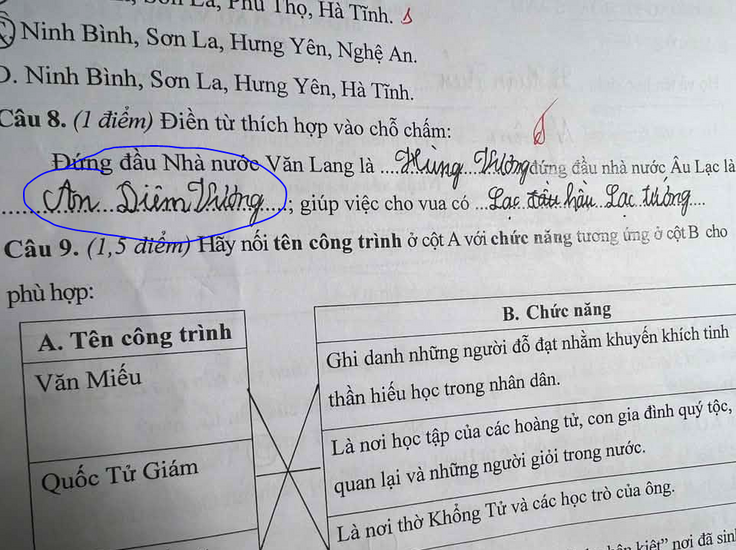 La, Phú Thọ, Hà Tĩnh.
Ninh Bình, Sơn La, Hưng Yên, Nghệ An.
D. Ninh Bình, Sơn La, Hưng Yên, Hà Tĩnh.
Câu 8. (1 điểm) Điền từ thích hợp vào chỗ chấm:
Đứng đầu Nhà nước Văn Lang là ...Hùng...Vương đứng đầu nhà nước Âu Lạc là
...An...Diêm Vương....; giúp việc cho vua có ...Lạc hầu Lạc tướng...
Câu 9. (1,5 điểm) Hãy nối tên công trình ở cột A với chức năng tương ứng ở cột B cho
phù hợp:
A. Tên công trình
Văn Miếu
Quốc Tử Giám
B. Chức năng
Ghi danh những người đỗ đạt nhằm khuyến khích tinh
thần hiếu học trong nhân dân.
Là nơi học tập của các hoàng tử, con gia đình quý tộc,
quan lại và những người giỏi trong nước.
Là nơi thờ Khổng Tử và các học trò của ông.
kiệt” nơi đã sinh